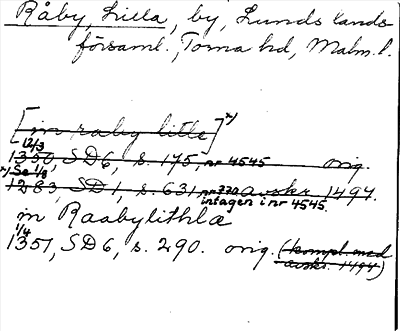 Råby, Lilla, by, Lunds lands
församl., Torna hd, Malm. l.
[in raby litle] x)
12/3
1350, SD6, s. 175, nr 4545 orig.
x) Se 1/8
1283, SD1, s. 631, nr 770 avskr 1494.
intagen i nr 4545.
in Raabylithlæ
1/4
1351, SD6, s. 290. orig. (kompl. med
avskr. 1494)